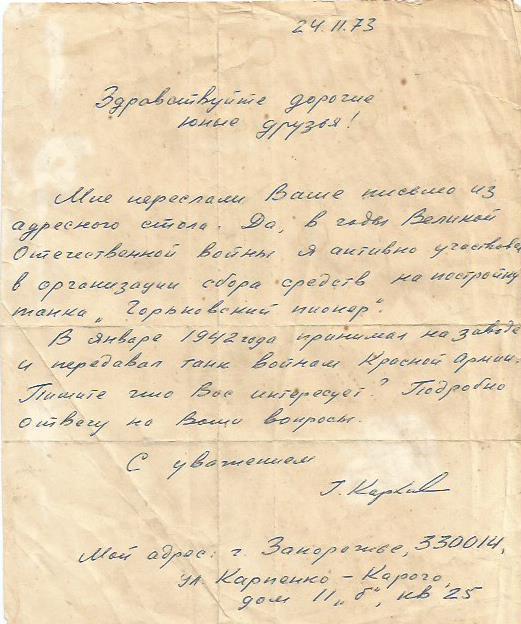 24.11.73
Здравствуйте дорогие
юные друзья!
Мне переслали Ваше письмо из
адресного стола. Да, в годы Великой
Отечественной войны я активно участвова
в организации сбора средств на постройку
танка „Горьковский пионер".
В январе 1942 года принимал на заводе
и передавал танк войнам Красной Армии.
Пишите что Вас интересует? Подробно
отвечу на Ваши вопросы.
С уважением
Г.
Мой адрес: г. Запорожье, 330014,
ул. Карпенко-Карого,
дом 11 „б", кв 25